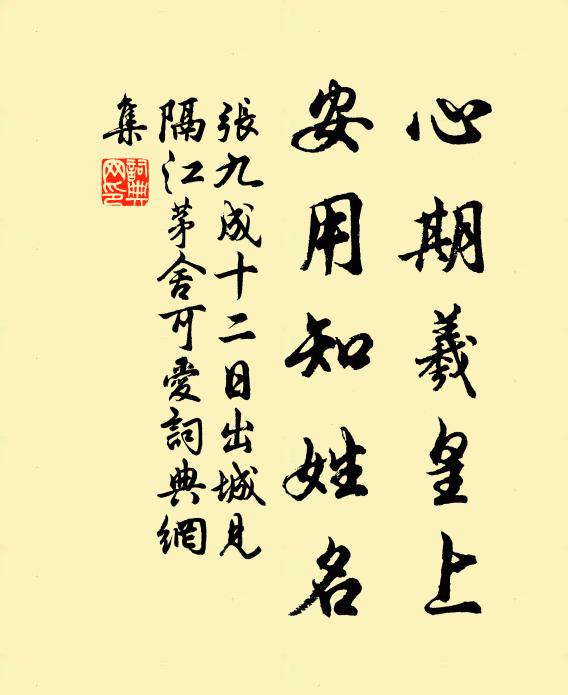 心期羲皇上
安用知姓名
張九成十二日出城見
隔江茅舍可愛詞典網
集
詞典網印